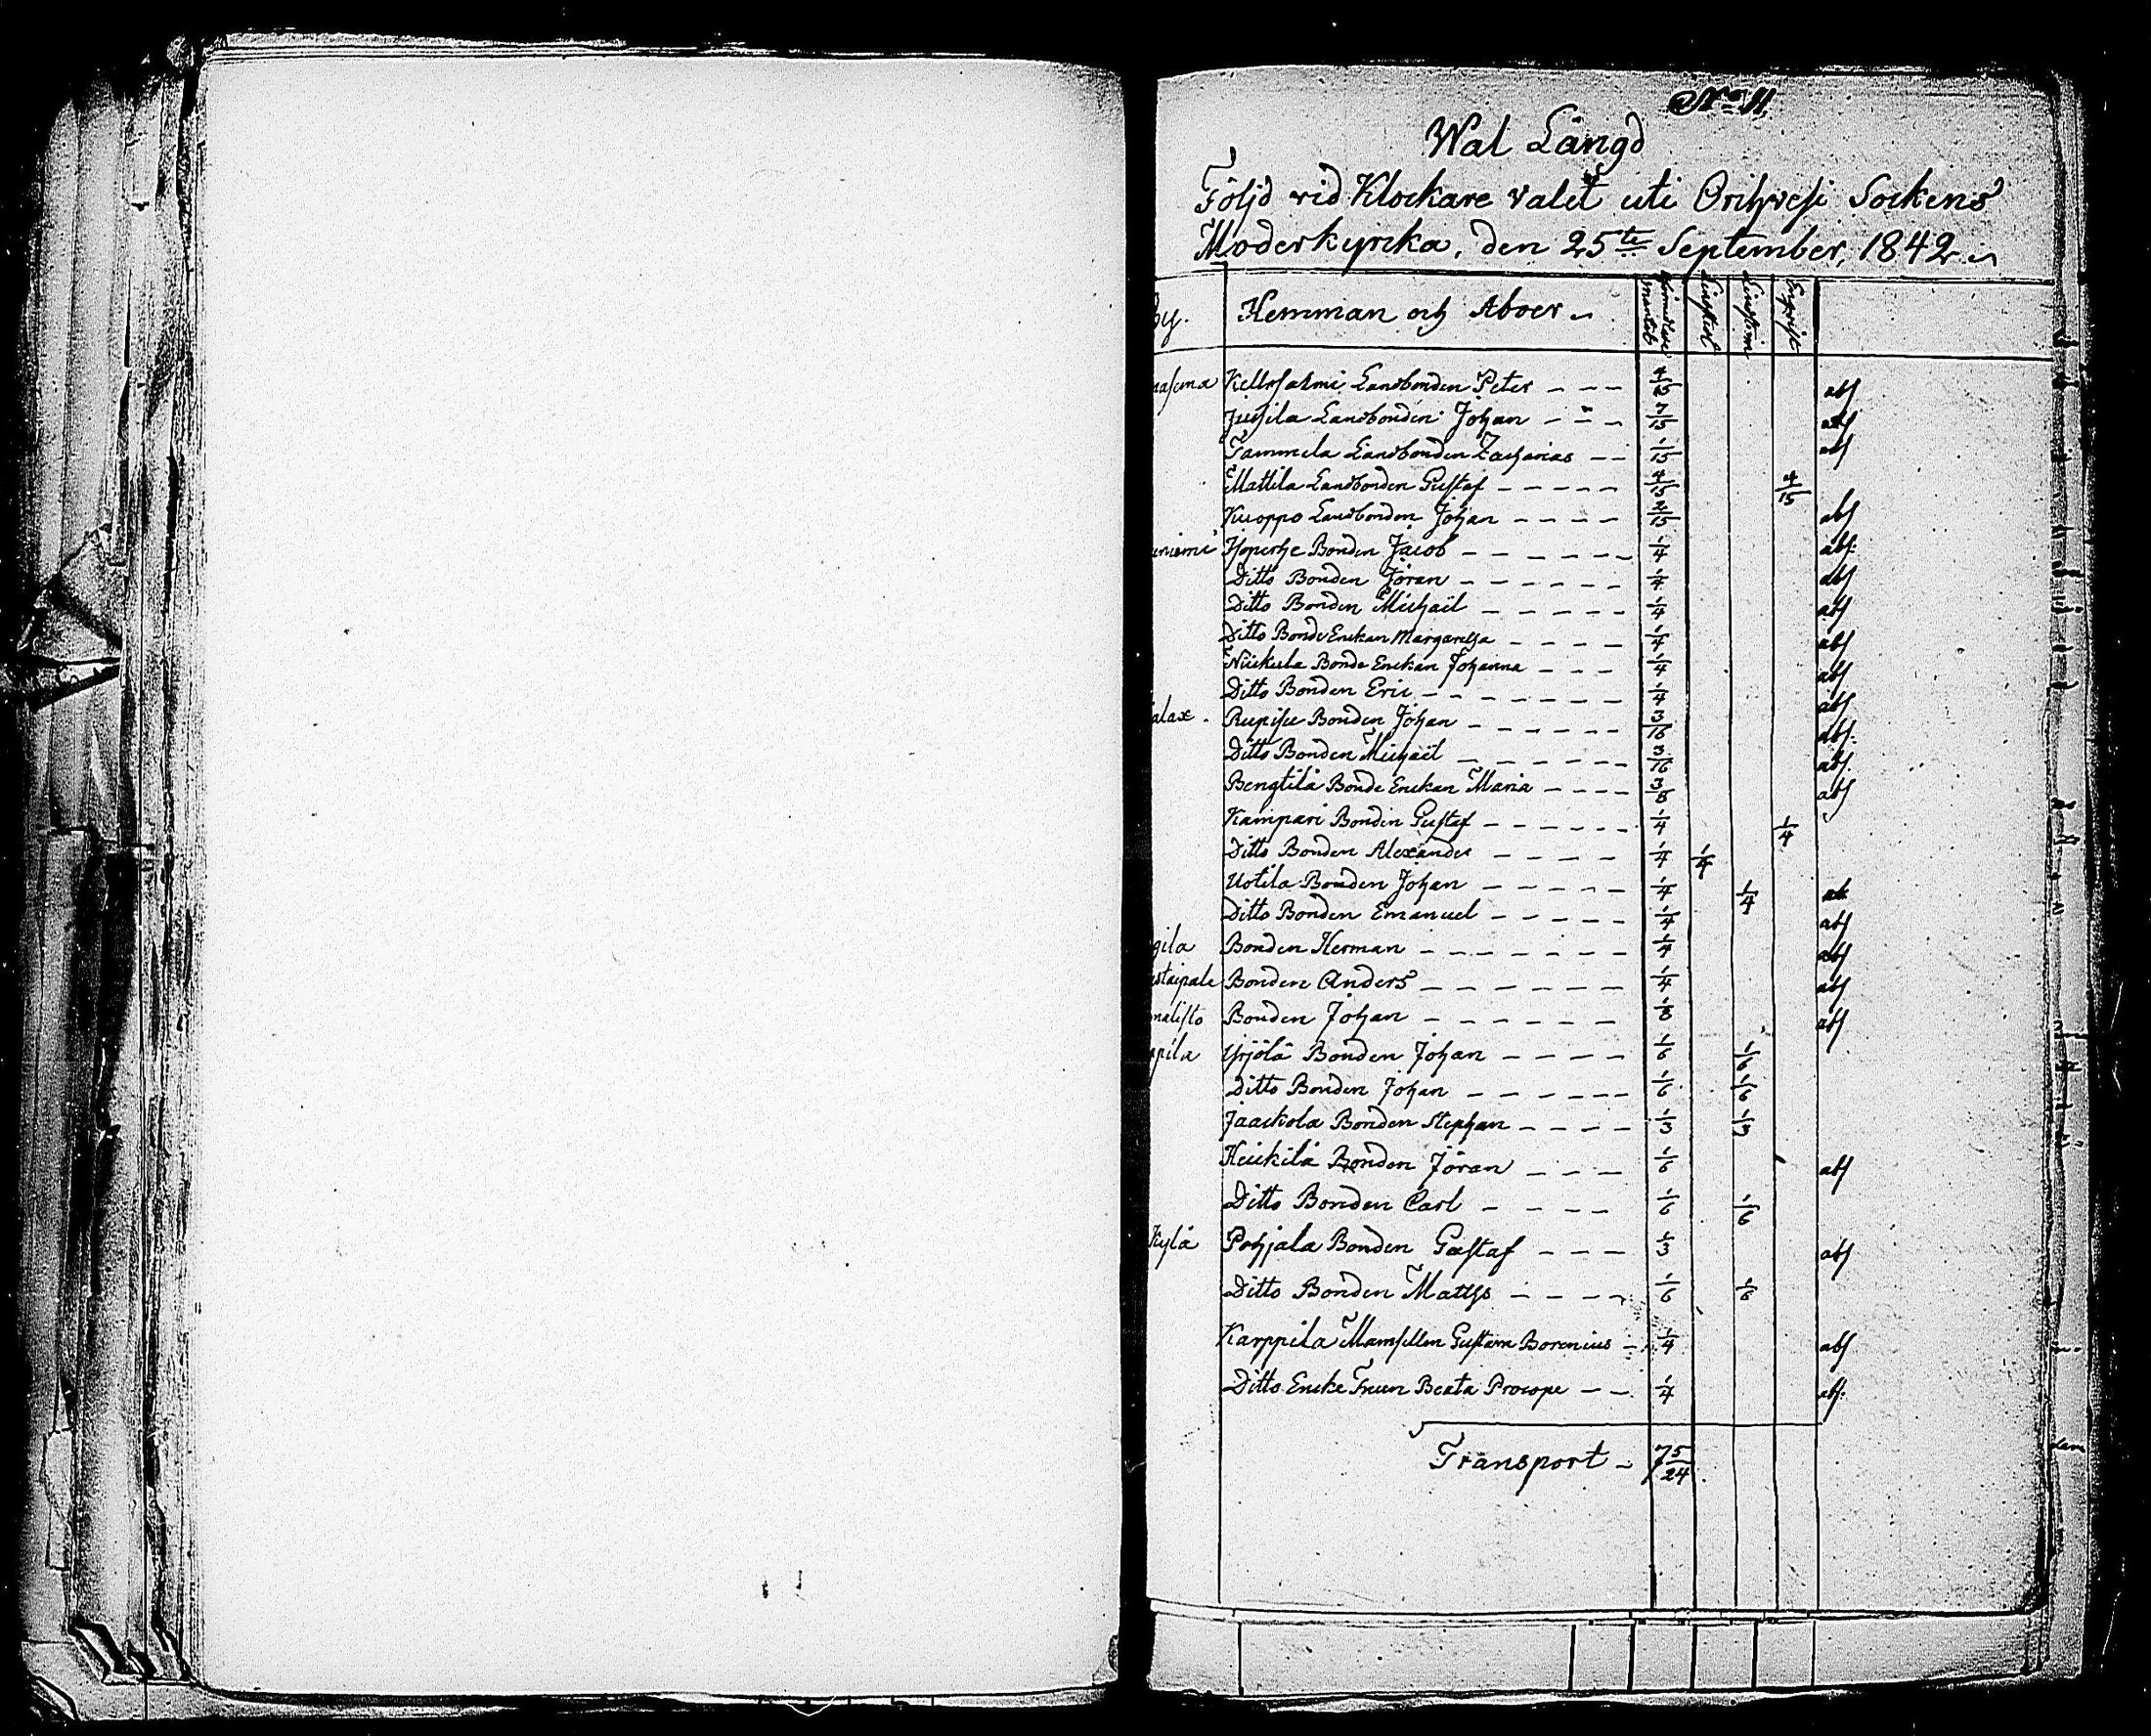 No 11
Wal Längd
Följd vid Klockare valet uti Orihvesi Sockens
Moderkyrka, den 25te September, 1842
By. Hemman och Åboer mantal
Kellosalmi Landbonden Peter 4/15 abs
Juhila Landbonden Johan 7/15 abs
Tammela Landbonden Zacharias 1/15 abs
Mattila Landbonden Gustaf 4/15 4/15
Kuoppo Landbonden Johan 2/15 abs
niemi Bonden Jacob 1/4 abs.
Ditto Bonden Jöran 1/4 abs
Ditto Bonden Michaël 1/4 abs
Ditto Bonde Enckan Margaretha 1/4 abs
Bonde Enckan Johanna 1/4 abs
Ditto Bonden Eric 1/4 abs
alax. Bonden Johan 3/16 abs.
Ditto Bonden Michaël 3/16 abs.
Bengtilä Bonde Enckan Maria 3/8 abs
Kampari Bonden Gustaf 1/4 1/4
Ditto Bonden Alexander 1/4 1/4
Uotila Bonden Johan 1/4 1/4
Ditto Bonden Emanuel 1/4 abs
gila Bonden Herman 1/4 abs
staipale Bonden Anders 1/4 abs
malisto Bonden Johan 1/8 abs
ppila Yrjölä Bonden Johan 1/6 1/6
Ditto Bonden Johan 1/6 1/6
Jaackola Bonden Stephan 1/3 1/3
Heickilä Bonden Jöran 1/6 abs
Ditto Bonden Carl 1/6 1/6
Kylä Pohjala Bonden Gustaf 1/3 abs
Ditto Bonden Matths 1/6 1/6
Karppila Mamsellen Gustava Borenius 1/4 abs
Ditto Encke Fruen Beata Procope 1/4 abs.
Transport 7 5/24